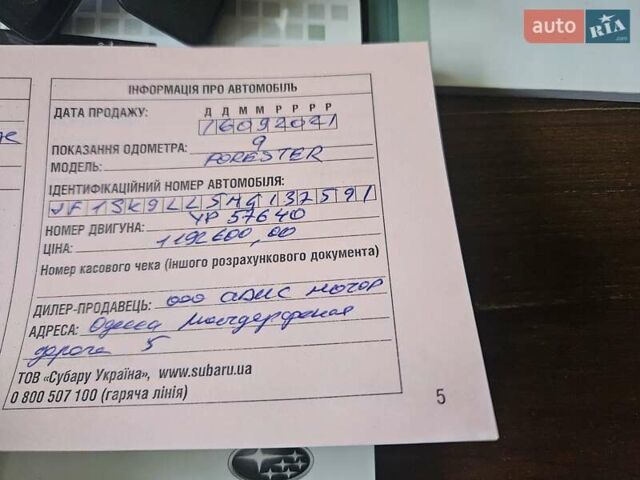 auto RIA.com
ІНФОРМАЦІЯ ПРО АВТОМОБІЛЬ
ДАТА ПРОДАЖУ: Д Д М М Р Р Р Р
16092021
ПОКАЗАННЯ ОДОМЕТРА: 9
МОДЕЛЬ: FORESTER
ІДЕНТИФІКАЦІЙНИЙ НОМЕР АВТОМОБІЛЯ:
JF1SK9LL5MG132591
НОМЕР ДВИГУНА: УР57640
ЦІНА: 1192600,00
Номер касового чека (іншого розрахункового документа)
ДИЛЕР-ПРОДАВЕЦЬ: ООО АДИС МОТОР
АДРЕСА: Одесса
дорога 5
ТОВ «Субару Україна», www.subaru.ua
0 800 507 100 (гаряча лінія)
5